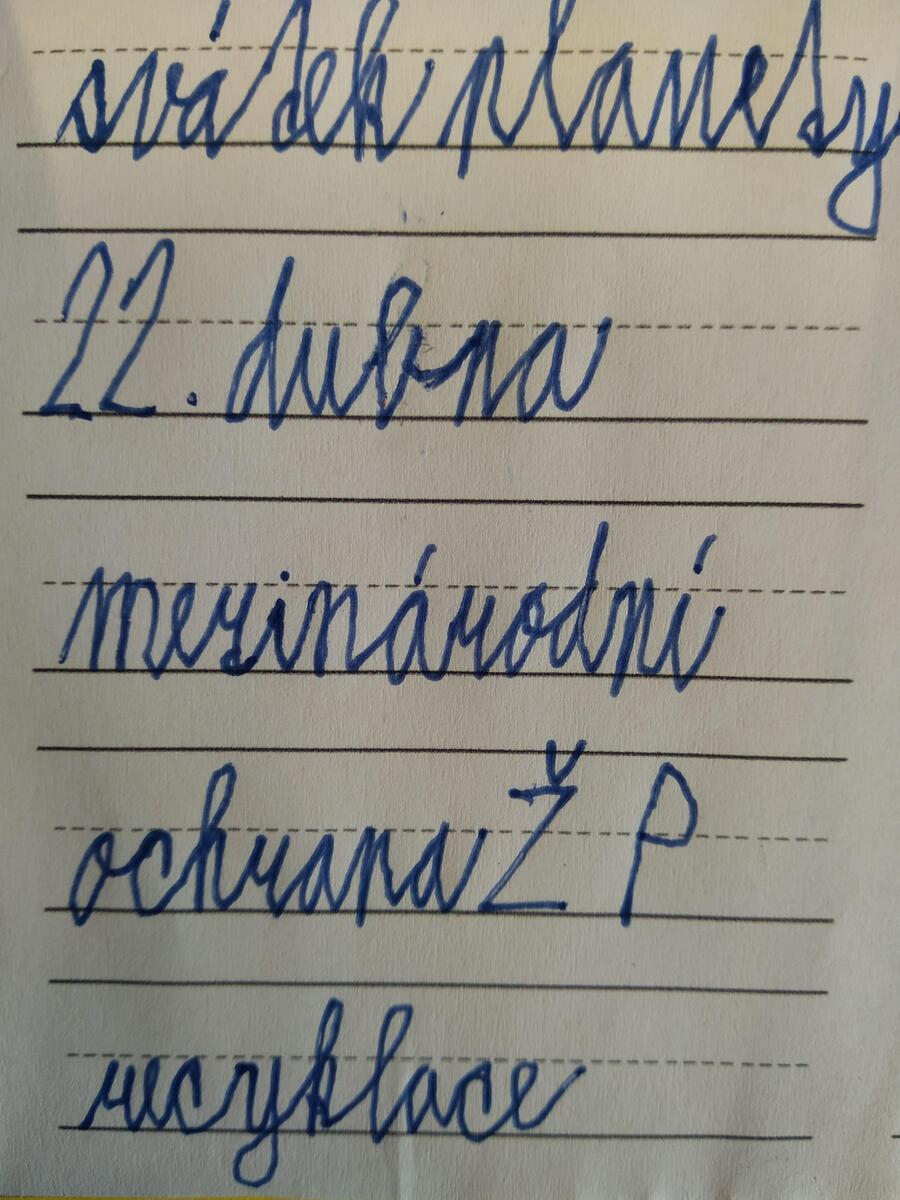 svátek planety
22. dubna
mezinárodní
ochrana Ž P
recyklace